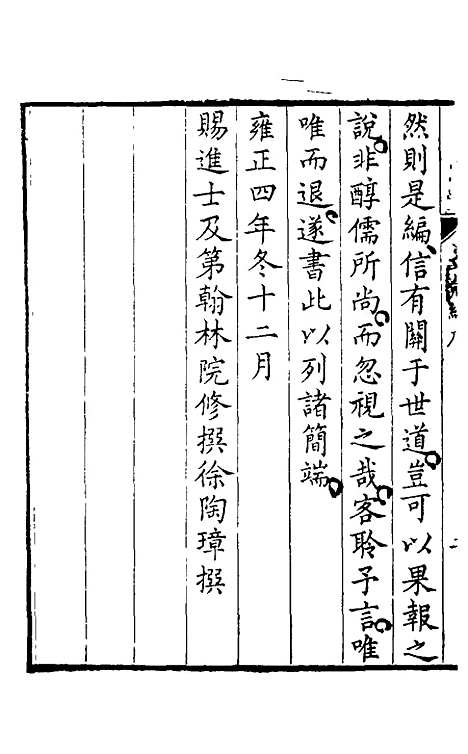 然則是編、信有關于世道。豈可以果報之
說。非醇儒所尚。而忽視之哉。客聆予言。唯
唯而退。遂書此以列諸簡端。
雍正四年冬十二月
賜進士及第翰林院修撰徐陶璋撰